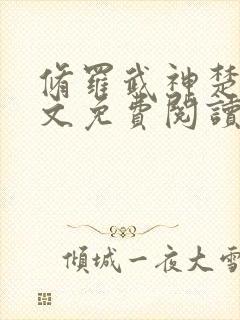 脩羅武神楚
文免費閱讀
傾城一夜大雪